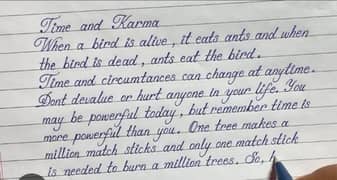 Time and Karma
When a bird is alive, it eats ants and when
the bird is dead, ants eat the bird.
Time and circumtances can change at anytime.
Dont devalue or hurt anyone in your life. You
may be powerful today, but remember time is
more powerful than you. One tree makes a
million match sticks and only one match stick
is needed to burn a million trees. So, b